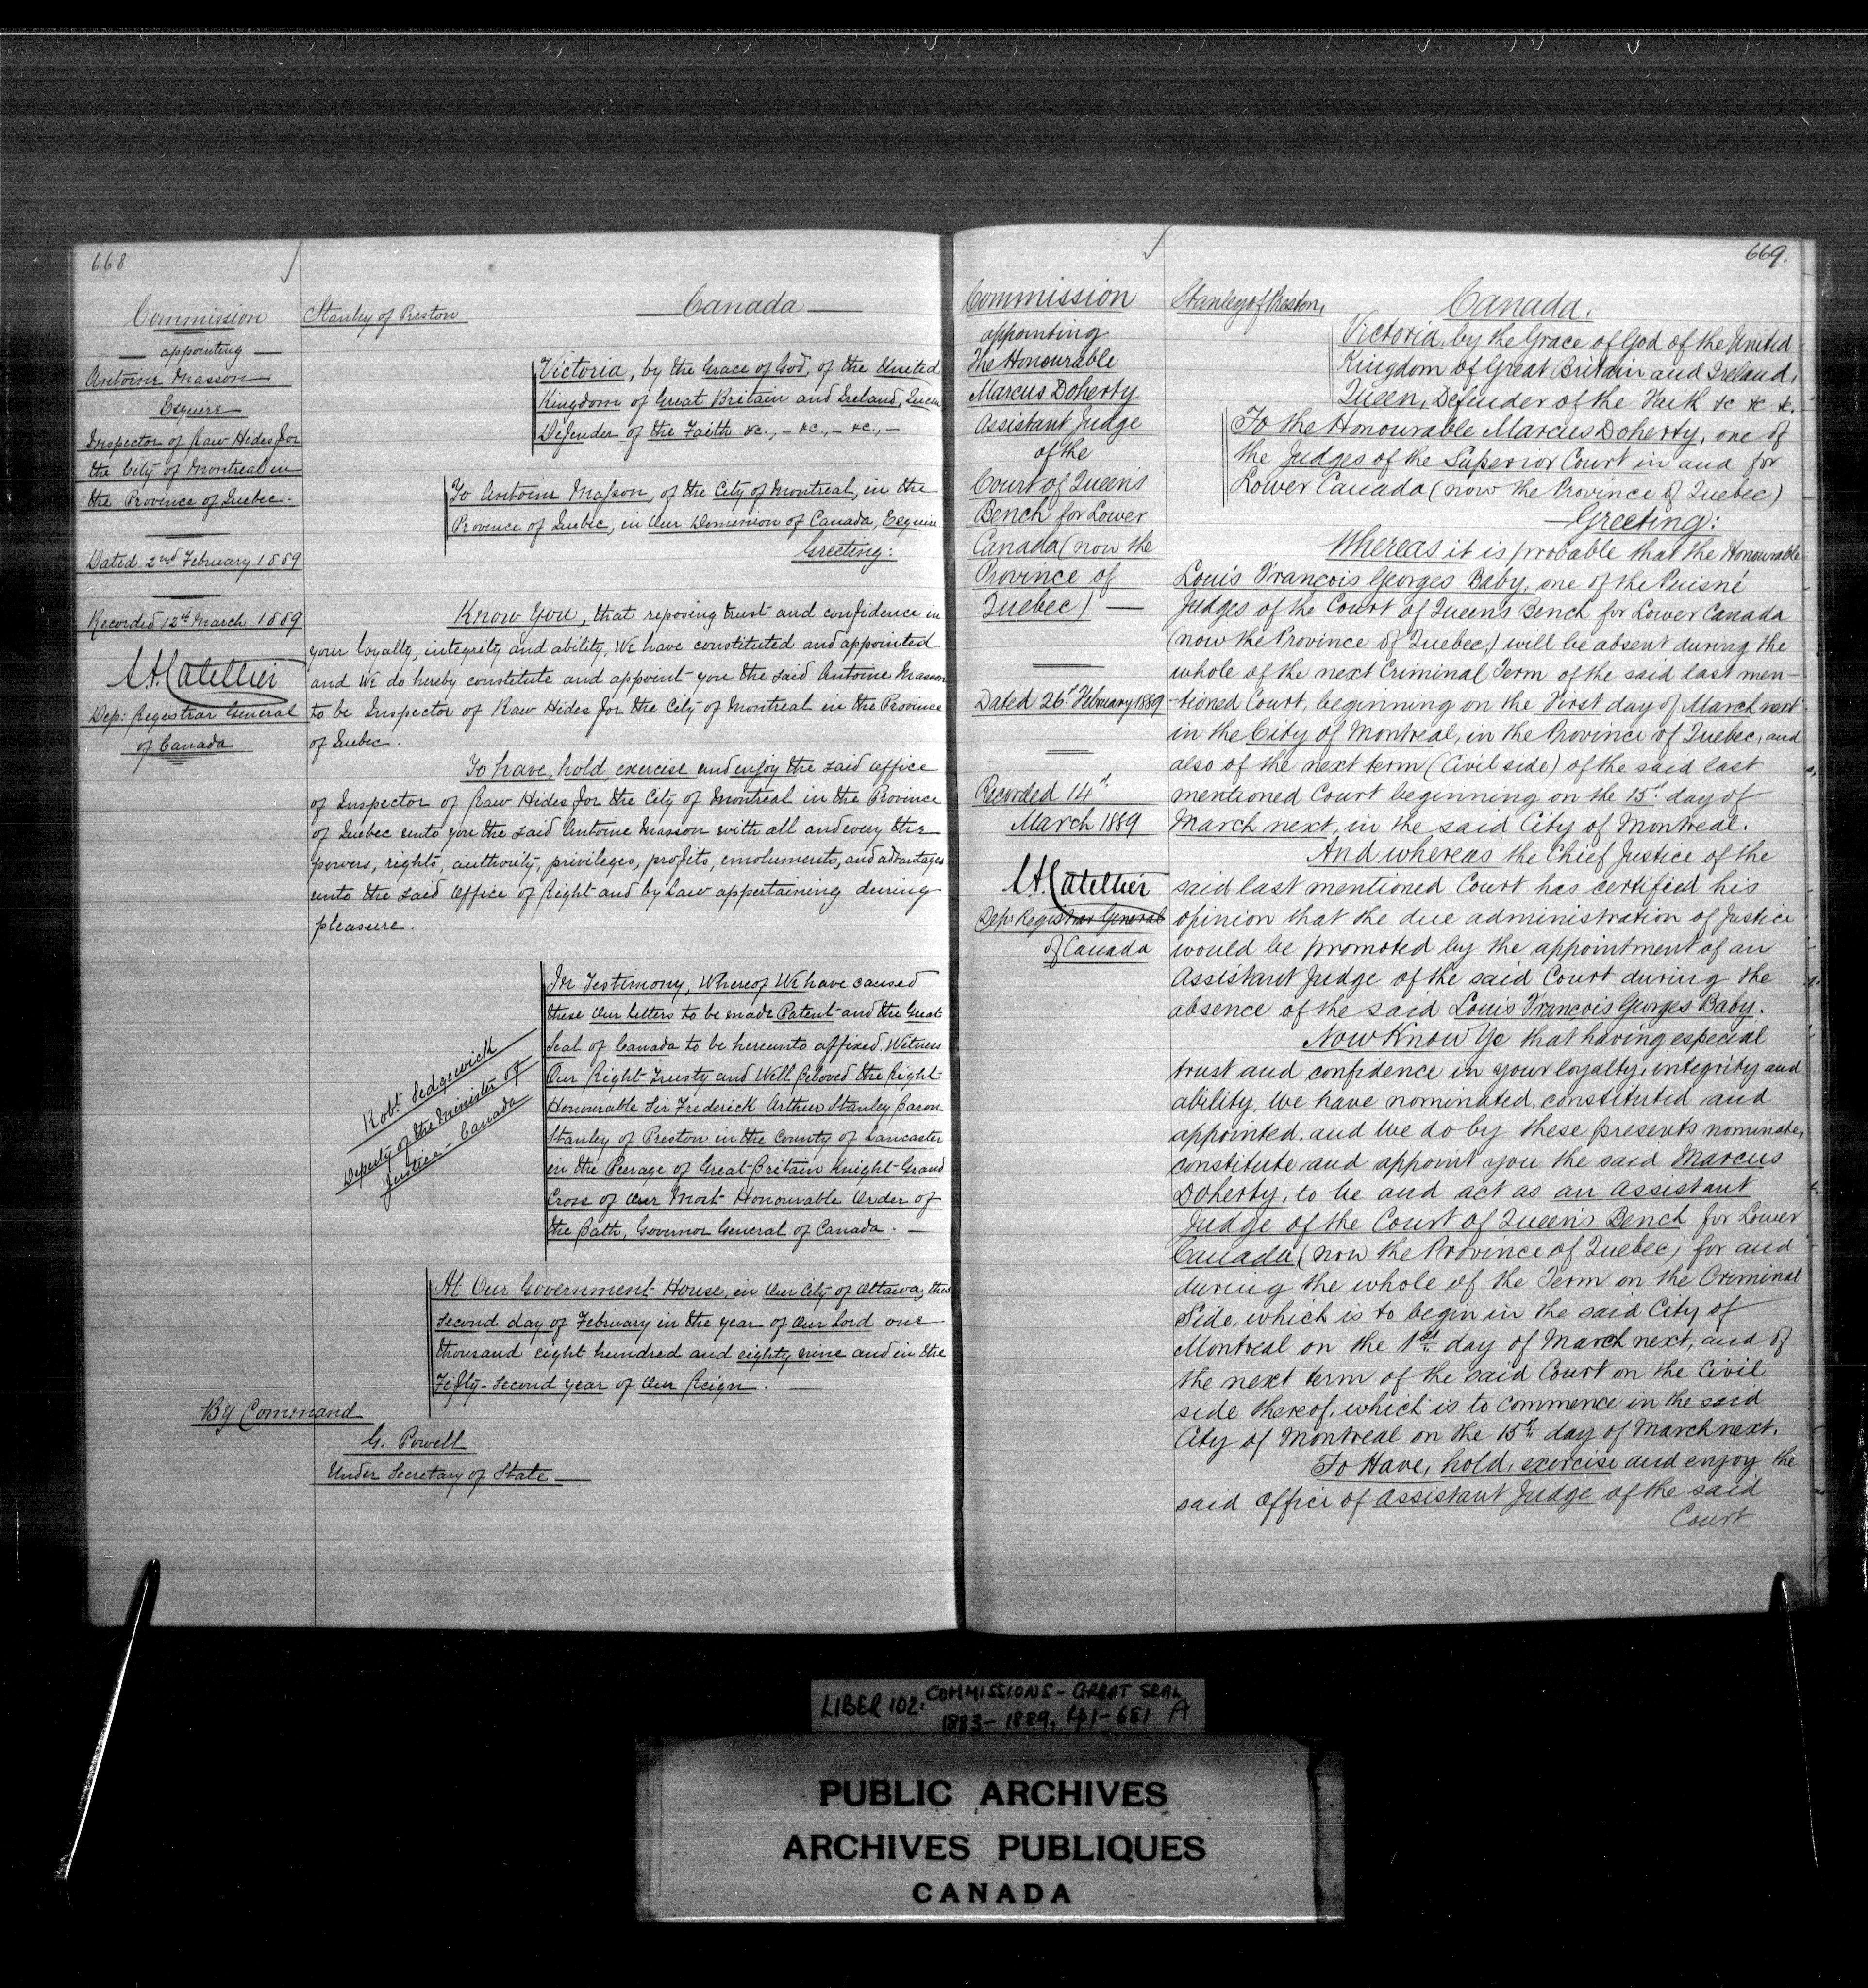 668
Commission
appointing
Antoine Masson
Esquire
Inspector of Raw Hides for
the City of Montreal in
the Province of Quebec.
Dated 2nd February 1889
Recorded 12th March 1889
Catellier
Dep: Registrar General
of Canada
Stanley of Preston
Canada
Victoria, by the Grace of God, of the United
Kingdom of Great Britain and Ireland, Queen
Defender of the Faith &c., - &c., - &c., -
To Antoine Masson, of the City of Montreal, in the
Province of Quebec, in Our Dominion of Canada, Esquire
Greeting:
Know You, that reposing trust and confidence in
your loyalty, integrity and ability, We have constituted and appointed
and We do hereby constitute and appoint you the said Antoine Masson
to be Inspector of Raw Hides for the City of Montreal in the Province
of Quebec.
To have, hold, exercise and enjoy the said Office
of Inspector of Raw Hides for the City of Montreal in the Province
of Quebec unto you the said Antoine Masson with all and every the
powers, rights, authority, privileges, profits, emoluments, and advantages
unto the said Office of Right and by Law appertaining during
pleasure.
In Testimony, Whereof We have caused
these Our Letters to be made Patent and the Great
Seal of Canada to be hereunto affixed. Witness
Our Right Trusty and Well Beloved the Right
Honourable Sir Frederick Arthur Stanley Baron
Stanley of Preston in the County of Lancaster
in the Peerage of Great Britain Knight Grand
Cross of Our Most Honourable Order of
the Bath, Governor General of Canada. -
Robt. Sedgewick
Deputy of the Minister of
Justice - Canada
At Our Government House, in Our City of Ottawa, this
second day of February in the year of Our Lord one
thousand eight hundred and eighty nine and in the
Fifty-second year of Our Reign. -
By Command
G. Powell
Under Secretary of State -
669.
Commission
appointing
the Honourable
Marcus Doherty
Assistant Judge
of the
Court of Queen's
Bench for Lower
Canada (now the
Province of
Quebec) -
Dated 26th February 1889
Recorded 14th
March 1889
Catellier
Dep: Registrar General
of Canada
Stanley of Preston,
Canada.
Victoria, by the Grace of God of the United
Kingdom of Great Britain and Ireland,
Queen, Defender of the Faith &c &c &c.
To the Honourable Marcus Doherty, one of
the Judges of the Superior Court in and for
Lower Canada (now the Province of Quebec)
Greeting:
Whereas it is probable that the Honourable
Louis François Georges Baby, one of the Puisné
Judges of the Court of Queen's Bench for Lower Canada
(now the Province of Quebec,) will be absent during the
whole of the next Criminal Term of the said last men-
tioned Court, beginning on the First day of March next
in the City of Montreal, in the Province of Quebec, and
also of the next term (Civil side) of the said last
mentioned Court beginning on the 15th day of
March next, in the said City of Montreal.
And whereas the Chief Justice of the
said last mentioned Court has certified his
opinion that the due administration of Justice
would be promoted by the appointment of an
Assistant Judge of the said Court during the
absence of the said Louis François Georges Baby.
Now Know Ye that having especial
trust and confidence in your loyalty, integrity and
ability, We have nominated, constituted and
appointed, and We do by these presents nominate,
constitute and appoint you the said Marcus
Doherty, to be and act as an Assistant
Judge of the Court of Queen's Bench for Lower
Canada (now the Province of Quebec) for and
during the whole of the Term on the Criminal
Side, which is to begin in the said City of
Montreal on the 1st day of March next, and of
the next term of the said Court on the Civil
side thereof, which is to commence in the said
City of Montreal on the 15th day of March next.
To Have, hold, exercise and enjoy the
said Office of Assistant Judge of the said
Court
LIBER 102: COMMISSIONS - GREAT SEAL
1883-1889, 441-681 A
PUBLIC ARCHIVES
ARCHIVES PUBLIQUES
CANADA